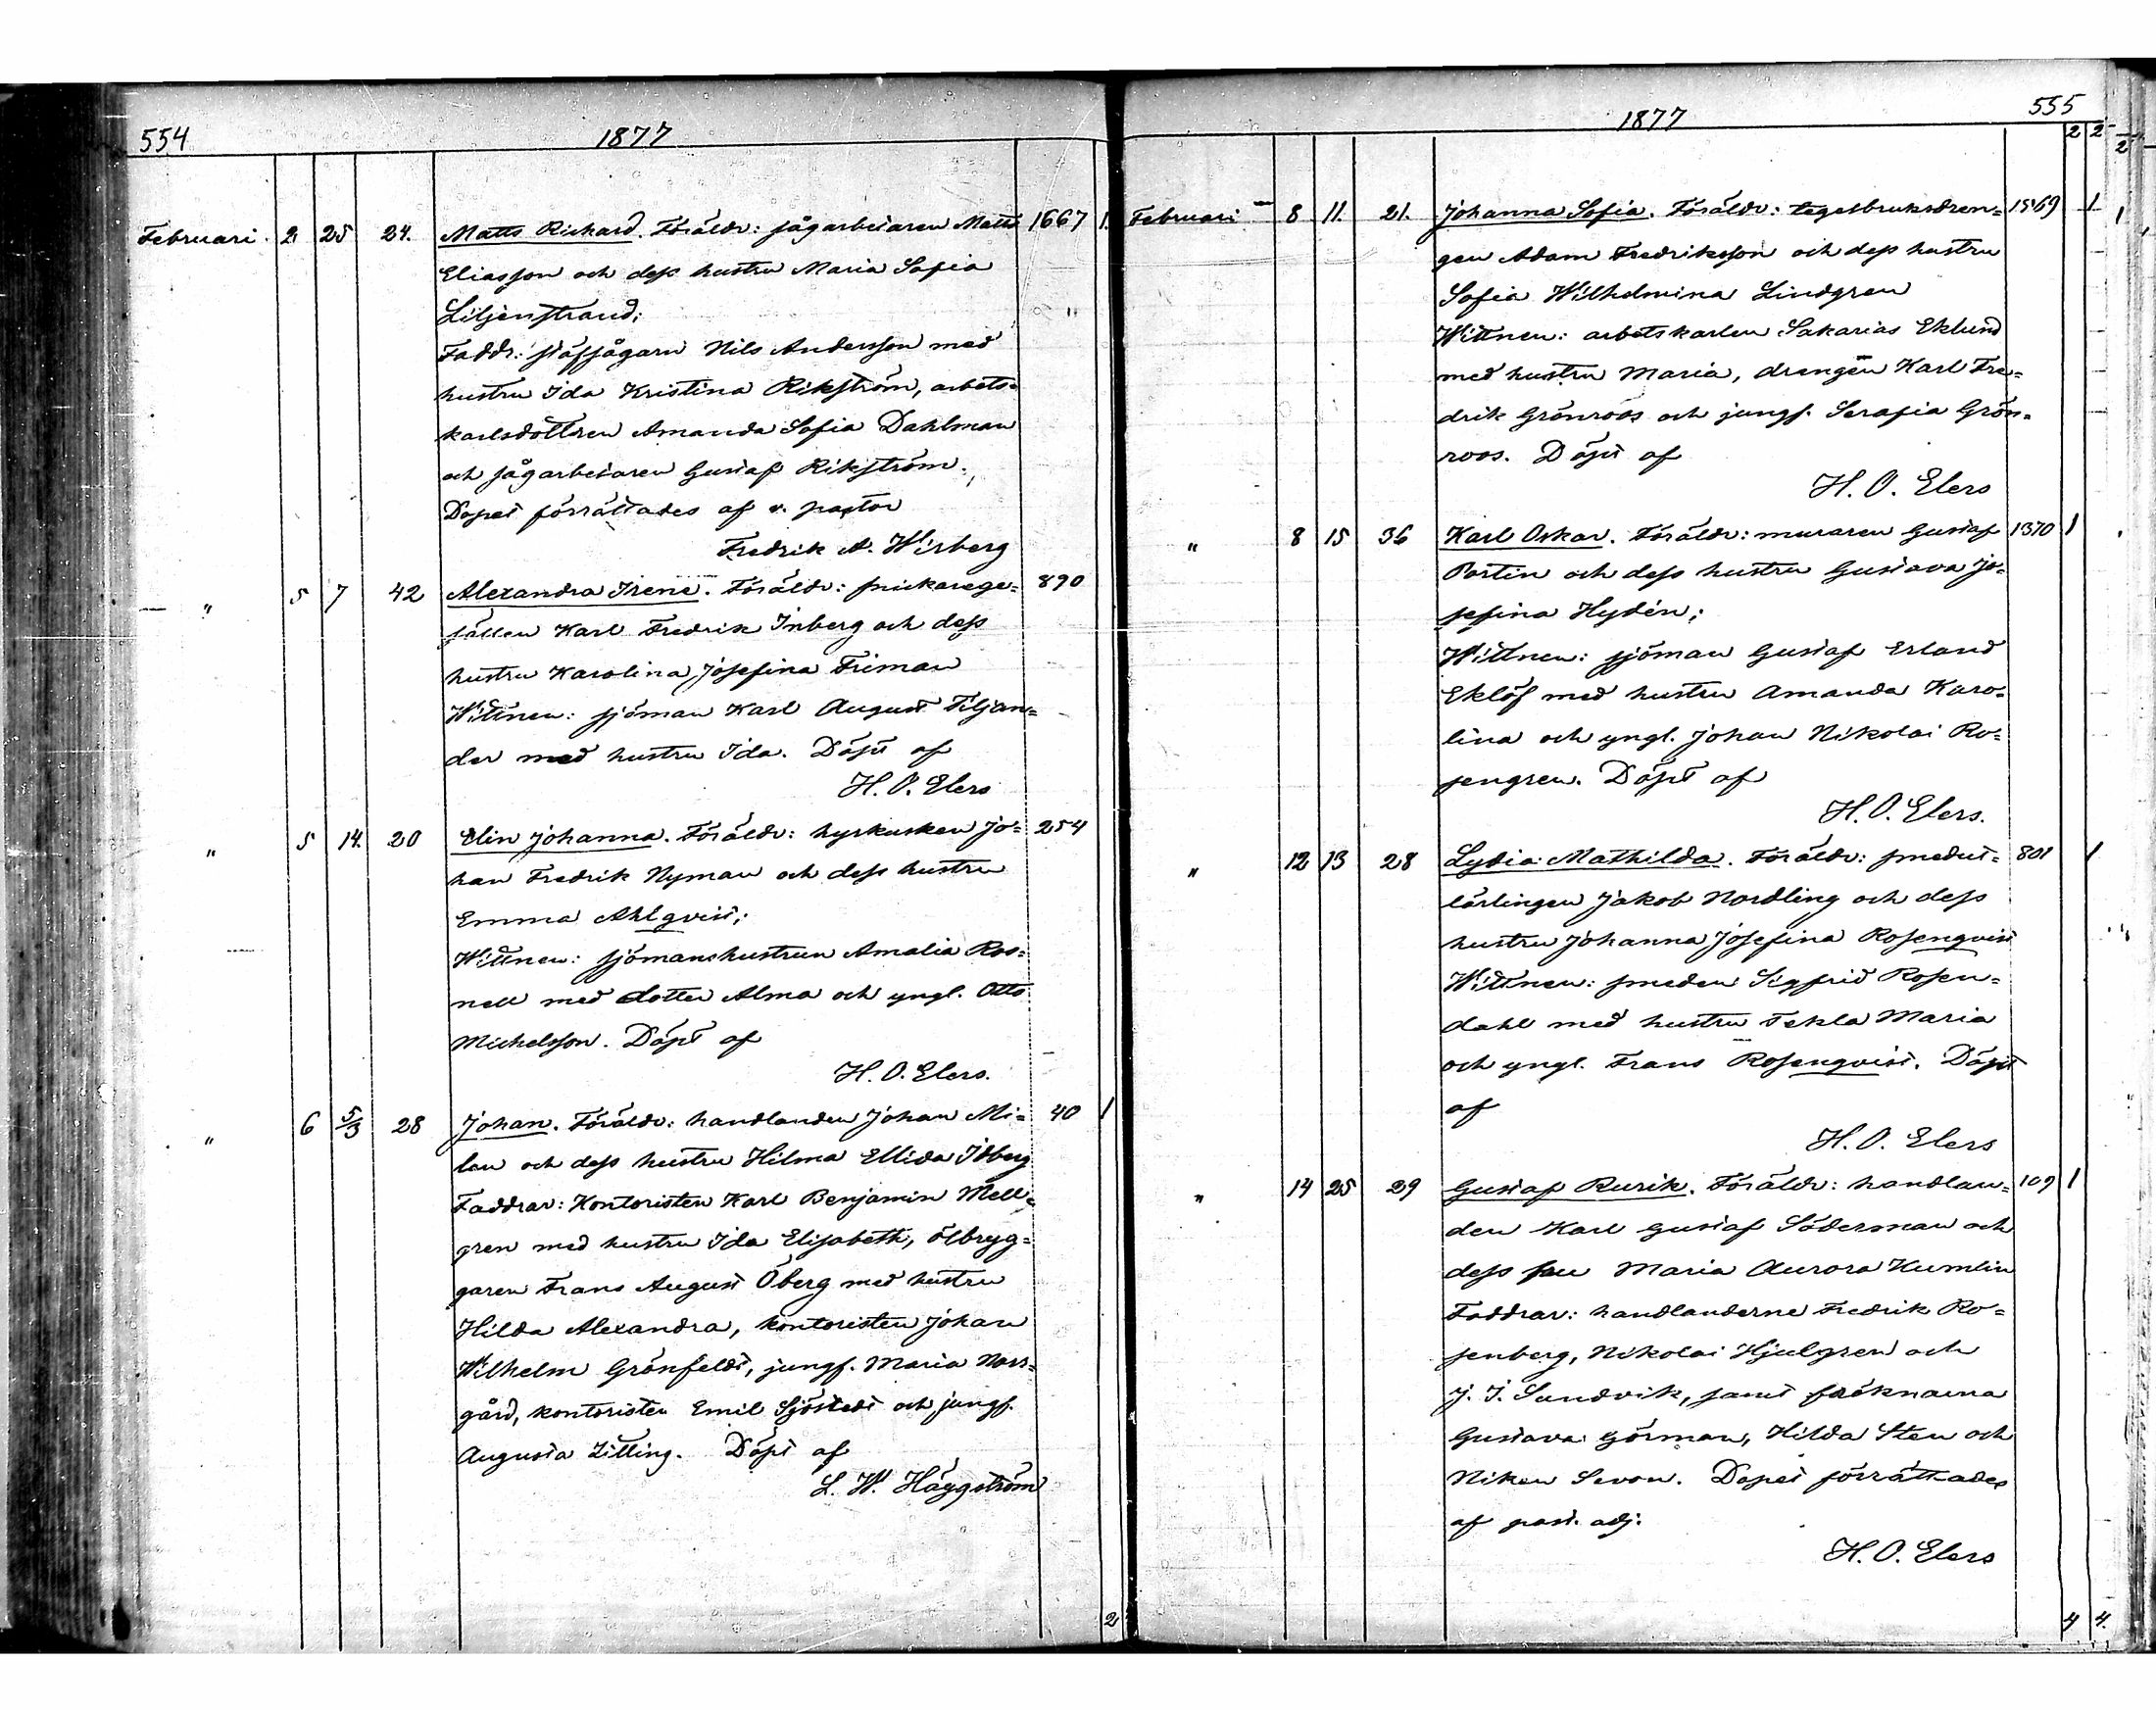 554
1877
Februari. 2 25 24. Matts Rickard. Föräldr: sågarbetaren Matts 1667 1.
Eliasson och dess hustru Maria Sofia
Liljenstrand;
Faddr: stäfsågarn Nils Andersson med
hustru Ida Kristina Rikström, arbets=
karlsdottren Amanda Sofia Dahlman
och sågarbetaren Gustaf Rikström.
Dopet förrättades af v. pastor
Fredrik A. Wirberg
" 5 7 42 Alexandra Irene. Föräldr: snickarege= 890
sällen Karl Fredrik Inberg och dess
hustru Karolina Josefina Friman
Wittnen: sjöman Karl August Tiljan=
der med hustru Ida. Döpt af
H. O. Elers
" 5 14. 20 Elin Johanna. Föräldr: hyrkusken Jo= 254
han Fredrik Nyman och dess hustru
Emma Ahlqvist;
Wittnen: sjömanshustrun Amalia Ros=
nell med dotter Alma och yngl. Otto
Michelsson. Döpt af
H. O. Elers.
" 6 5/3 28 Johan. Föräldr: handlanden Johan Mi= 40 1
lan och dess hustru Hilma Ellida Idberg
Faddrar: Kontoristen Karl Benjamin Mell=
gren med hustru Ida Elisabeth, ölbryg=
garen Frans August Öberg med hustru
Hilda Alexandra, kontoristen Johan
Wilhelm Grönfeldt, jungf. Maria Norr=
gård, kontoristen Emil Sjöstedt och jungf.
Augusta Zitting. Döpt af
L. W. Häggström
2
1877
555
2 2
2
Februari 8 11. 21. Johanna Sofia. Föräldr: tegelbruksdren= 1569 1
gen Adam Fredriksson och dess hustru
Sofia Wilhelmina Lindgren
Wittnen: arbetskarlen Sakarias Eklund
med hustru Maria, drengen Karl Fre=
drik Grönroos och jungf. Serafia Grön=
roos. Döpt af
H. O. Elers
" 8 15 36 Karl Oskar. Föräldr: muraren Gustaf 1370 1
Portin och dess hustru Gustava Jo=
sefina Hydén;
Wittnen: sjöman Gustaf Erland
Eklöf med hustru Amanda Karo=
lina och yngl. Johan Nikolai Ro=
sengren. Döpt af
H. O. Elers.
" 12 13 28 Lydia Mathilda. Föräldr: smedes= 801 1
lärlingen Jakob Nordling och dess
hustru Johanna Josefina Rosenqvist
Wittnen: smeden Sigfrid Rosen=
dahl med hustru Tekla Maria
och yngl. Frans Rosenqvist. Döpt
af
H. O. Elers
" 14 25 29 Gustaf Rurik. Föräldr: handlan= 109 1
den Karl Gustaf Söderman och
dess fru Maria Aurora Kumlin
Faddrar: handlanderne Fredrik Ro=
senberg, Nikolai Hjulgren och
J. I. Sandvik, samt fröknarna
Gustava Görman, Hilda Sten och
Niken Sevon. Dopet förrättades
af past. adj.
H. O. Elers
4 4.